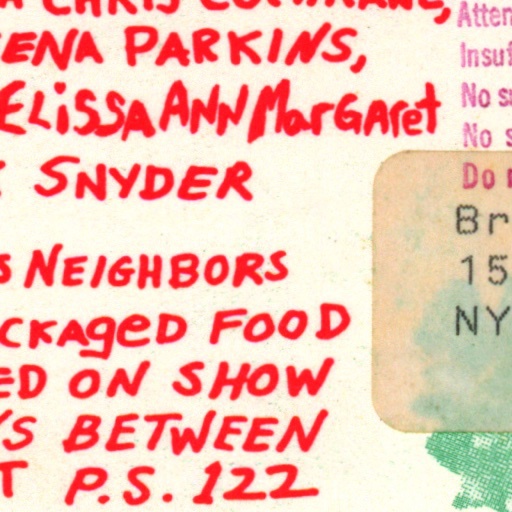 CHRIS COCHRANE,
ENA PARKINS,
ELISSA ANN MARGARET
SNYDER
S NEIGHBORS
CKAGED FOOD
ED ON SHOW
YS BETWEEN
T P.S. 122
Atten
Insuf
No su
No s
Do
Br
15
NY